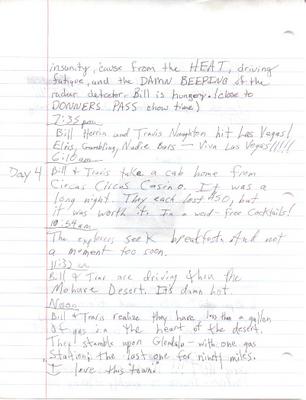 insanity, 'cause from the HEAT, driving
fatigue, and the DAMN BEEPING of the
radar detector. Bill is hungery! (close to
DONNERS PASS chow time)
7:35pm
Bill Herrin and Travis Naughton hit Las Vegas!
Elvis, Gambling, Nudie Bars — Viva Las Vegas!!!!!
6:10am
Day 4 Bill & Travis take a cab home from
Circus Circus Casino. It was a
long night. They each lost $50, but
it was worth it. In a word - free Cocktails!
10:54am
The explorers seek breakfast. And not
a moment too soon.
11:30
Bill & Trav are driving thru the
Mohave Desert. Its damn hot.
Noon
Bill & Travis realize they have less than a gallon
of gas in the heart of the desert.
They stumble upon Glendale - with one gas
Station; the last one for ninety miles.
I love this town.